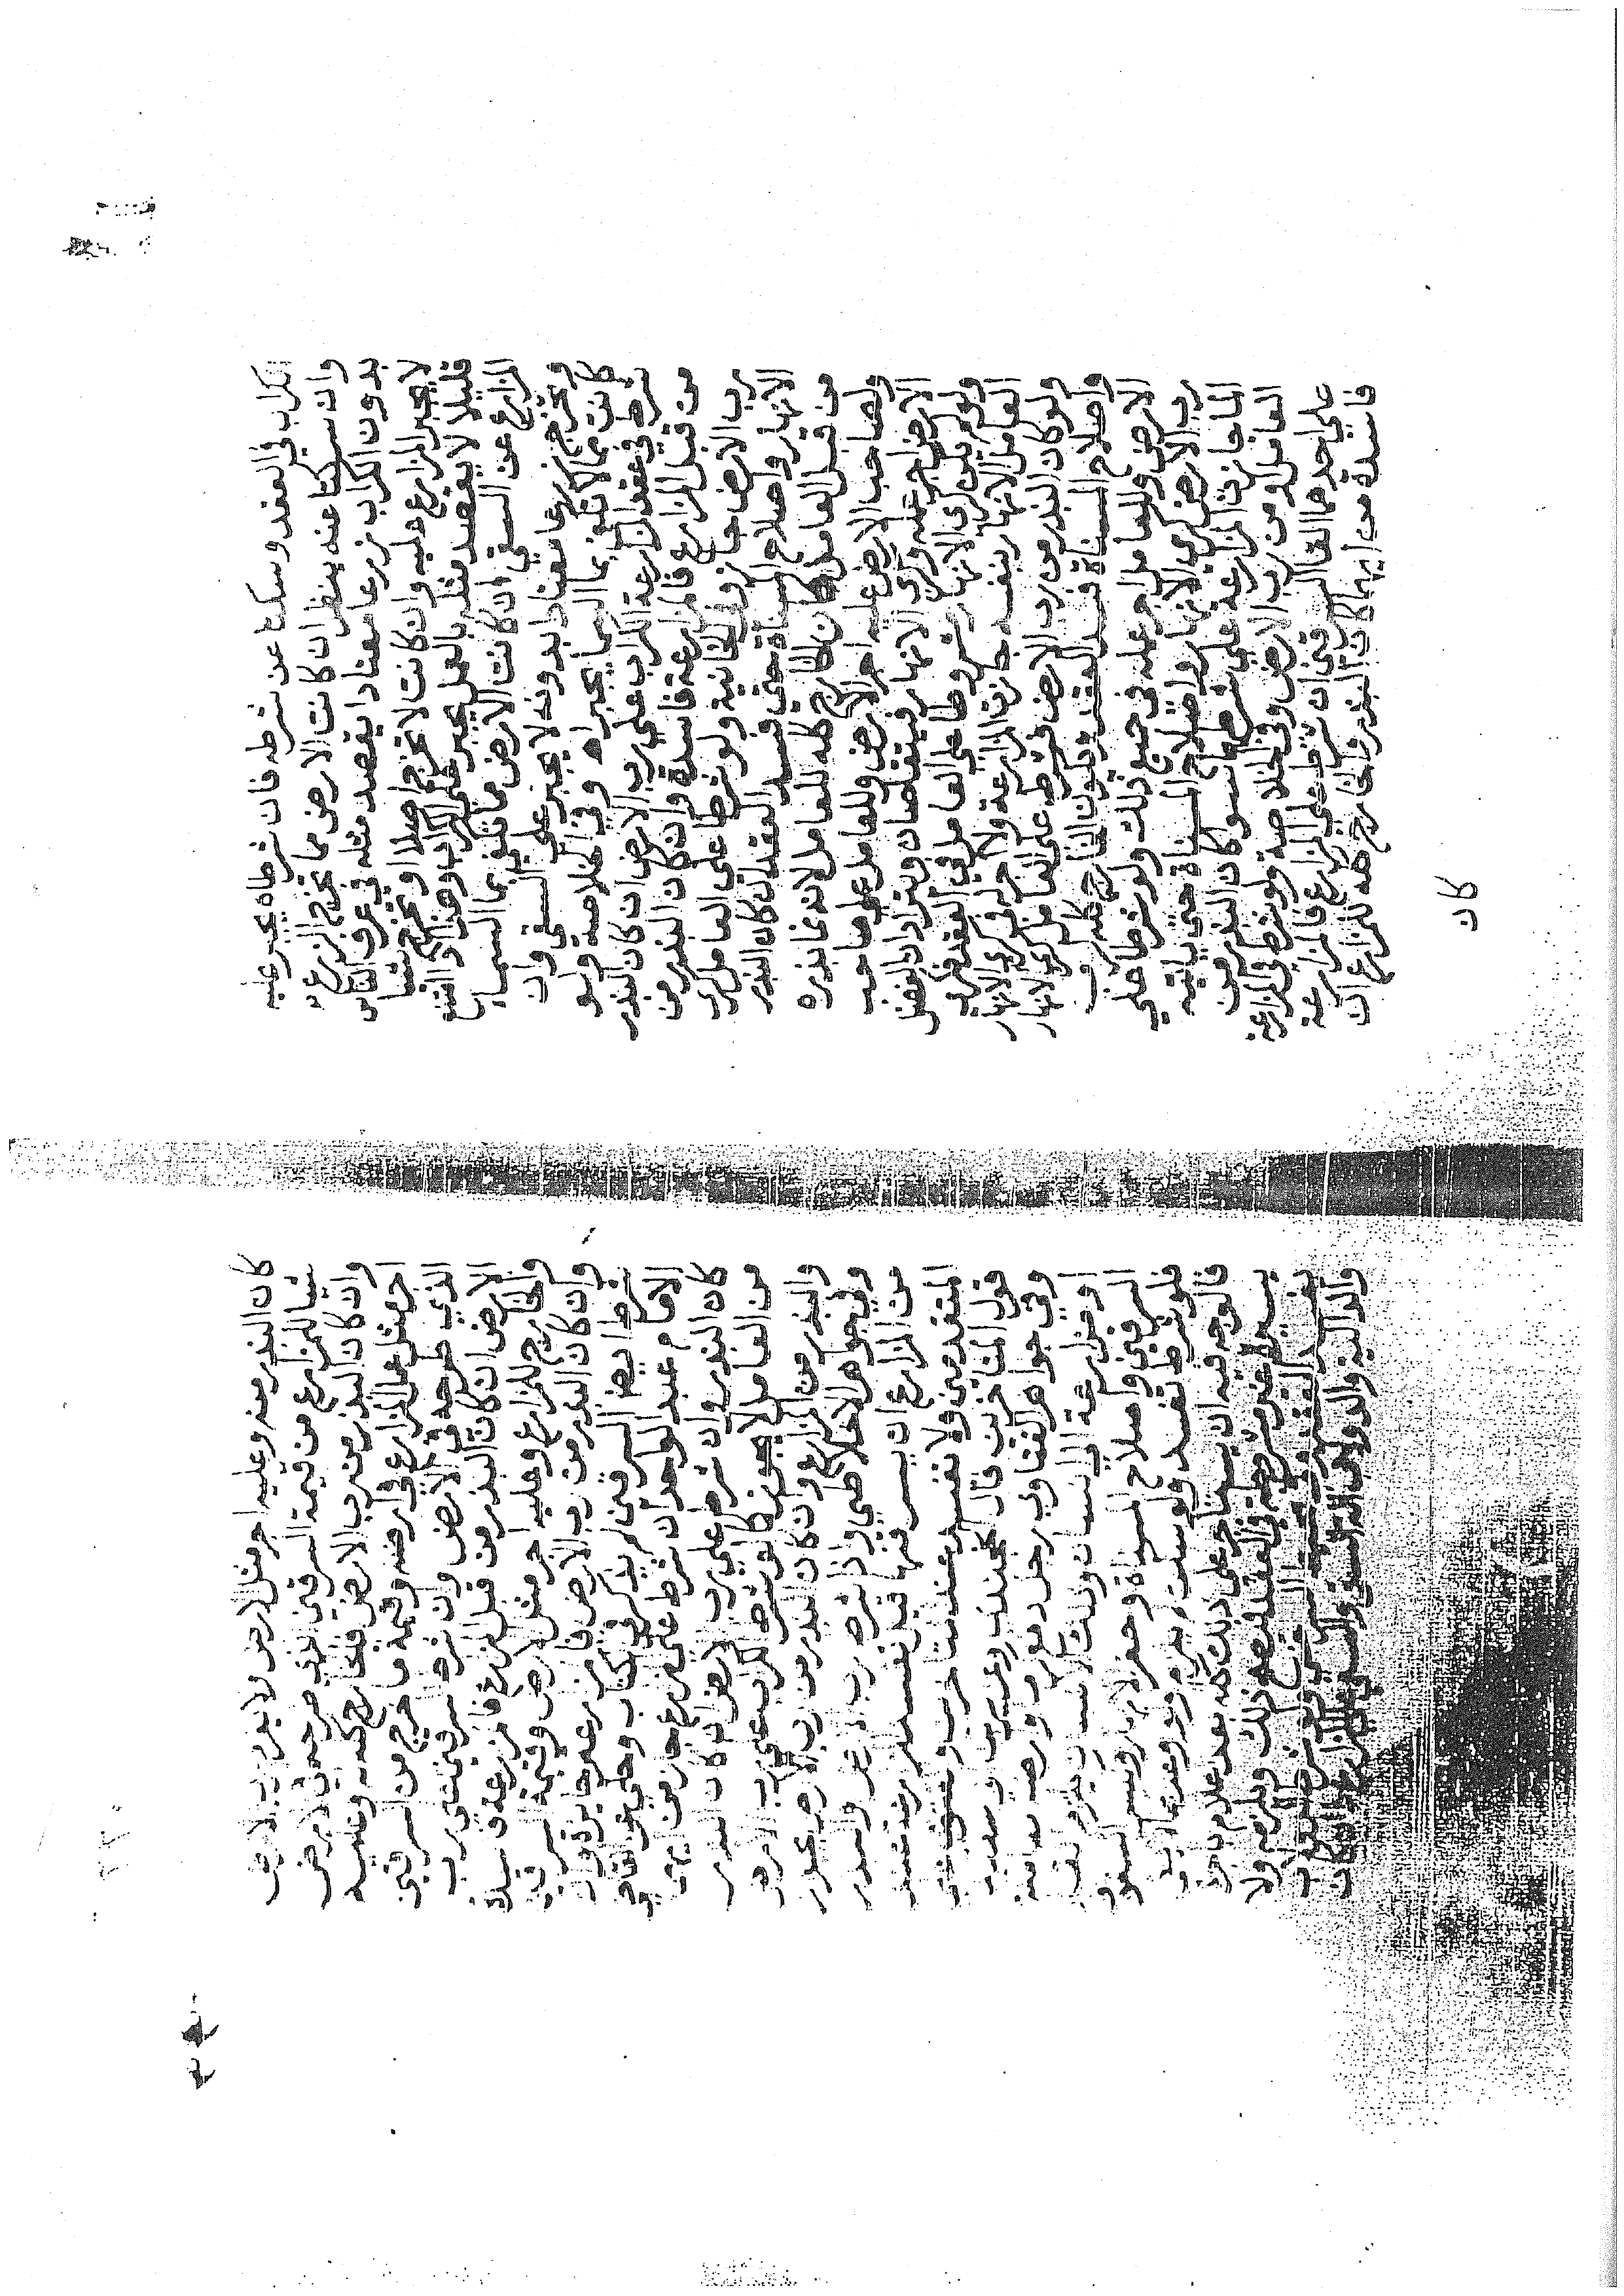 الكراب في العقد وسكتا عن شرطه فان شرطاه يجبر عليه
وان سكتا عنه ينظر ان كانت الارض مما يخرج الزرع
بدون الكراب زرعا معتادا يقصد مثله في عرف الناس
لا يجبر المزارع عليه وان كانت لا تخرج اصلا او تخرج شيا
قليلا لا يقصد مثله بالعمل يجبر على الكراب وعلى هذا اذا امتنع
المزارع عن السقي ان كانت الارض مما تكتفي بما السماء
وتخرج زرعا معتادا بدونه لا يجبر على السقي وان
كانت مما لا تكتفي بما السما يجبراه وفي الخلاصة ولو
شرط في عقد المزارعة الكراب على رب الارض ان كان البذر
من قبل المزارع فالمزارعة فاسدة وان كان البذر من
رب الارض جاز وفي الخانية ولو شرطا على العامل كري
الانهار واصلاح المسناة حتى فسد العقد ان كان البذر
من قبل العامل كان الخارج كله للعامل لانه نما بذره
ولصاحب الارض عليه اجر الارض وللعامل على صاحب
الارض اجر عمله وكري الانهار فيتقاصان ويترادان الفضل
ولو لم يكن كري الانهار مشروطا على العامل في العقد فكري
العامل الانهار بنفسه جازت المزارعة ولا اجر له في كري الانهار
ولو كان البذر من رب الارض فشرط على العامل كري الانهار
واصلاح المسناة فسد العقد ويكون الخارج كله لرب
الارض وللعامل اجر عمله في جميع ذلك ولو شرطا على
رب الارض كري الانهار واصلاح المسناة حتى ياتيه
الما جازت المزارعة على شرطهما سوا كان البذر من
العامل او من رب الارض وفي الخلاصة ولو شرط في المزارعة
على احدهما القا السرقين ان شرط على المزارع فالمزارعة
فاسدة من ايهما كان البذر والخارج كله للمزارع ان
كان
كان البذر منه وعليه اجر مثل الارض ولا يغرم رب الارض
شيا للمزارع من قيمة السرقين الذي طرحه في الارض
وان كان البذر من رب الارض فالخارج كله له وعليه
اجر مثل عمل المزارع في ارضه وقيمة ما طرح من السرقين
الذي طرحه في الارض وان شرط السرقين على رب
الارض ان كان البذر من قبل المزارع فالمزارعة فاسدة
والخارج للمزارع وعليه اجر مثل الارض وقيمة السرقين
وان كان البذر من رب الارض فالمزارعة جايزة وان
شرطا بعض السرقين لم يذكر في الكتاب وحكي عن القاضي
الامام عبد الواحد ان شرط على المزارع جاز من ايهما
كان البذر وان شرط على رب الارض ان كان البذر
من العامل لا يجوز كما لو شرط الكراب على رب الارض
والبذر من المزارع وان كان البذر من رب الارض يجوز
وفي جواهر الاخلاطي واذا شرط رب الارض والبذر
من المزارع ان يسرقنها قيل تفسد المزارعة عند
المتقدمين ولا تفسد عند المتاخرين والفتوى على
قول المتاخرين قال الخجندي
وفي جواهر الفتاوى رجل دفع كرمه او ارضه معاملة
او مزارعة الى انسان وذلك الانسان يلتزم نقل
السرقين واصلاح المسناة وحفر الانهار ورسم السوق
فلو شرط تفسد ولو سكت
فالوجه فيه ان يستاجر على ذلك كله بعد علامه باجرة
يسيرة غير مشروطة في العقد فيصح ذلك ويلزمه ولا